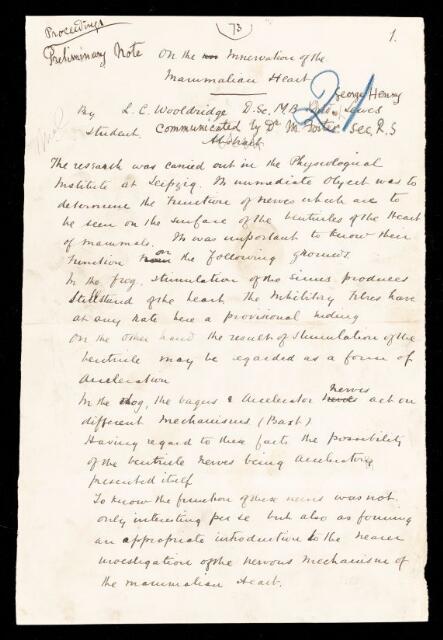 Proceedings
73
1.
Preliminary Note On the Innervation of the
Mammalian Heart
George Henry
By L. C. Wooldridge D.Sc, M.B. Lewes
21
Student Communicated by Dr M. Foster Sec. R.S
Abstract
The research was carried out in the Physiological
Institute at Leipzig. Its immediate object was to
determine the function of nerves which are to
be seen on the surface of the ventricles of the Heart
of mammals. It was important to know their
function on the following grounds.
In the frog, stimulation of the sinus produces
Stillstand of the heart the Inhibitory fibres have
at any rate here a provisional ending
On the other hand the result of stimulation of the
ventricle may be regarded as a form of
Acceleration
In the dog, the vagus & Accelerator nerves act on
different mechanisms (Baxt)
Having regard to these facts the possibility
of the ventricle nerves being accelerative
presented itself
To know the function of these nerves was not
only interesting per se but also as forming
an appropriate introduction to the nearer
investigation of the nervous mechanism of
the mammalian Heart.